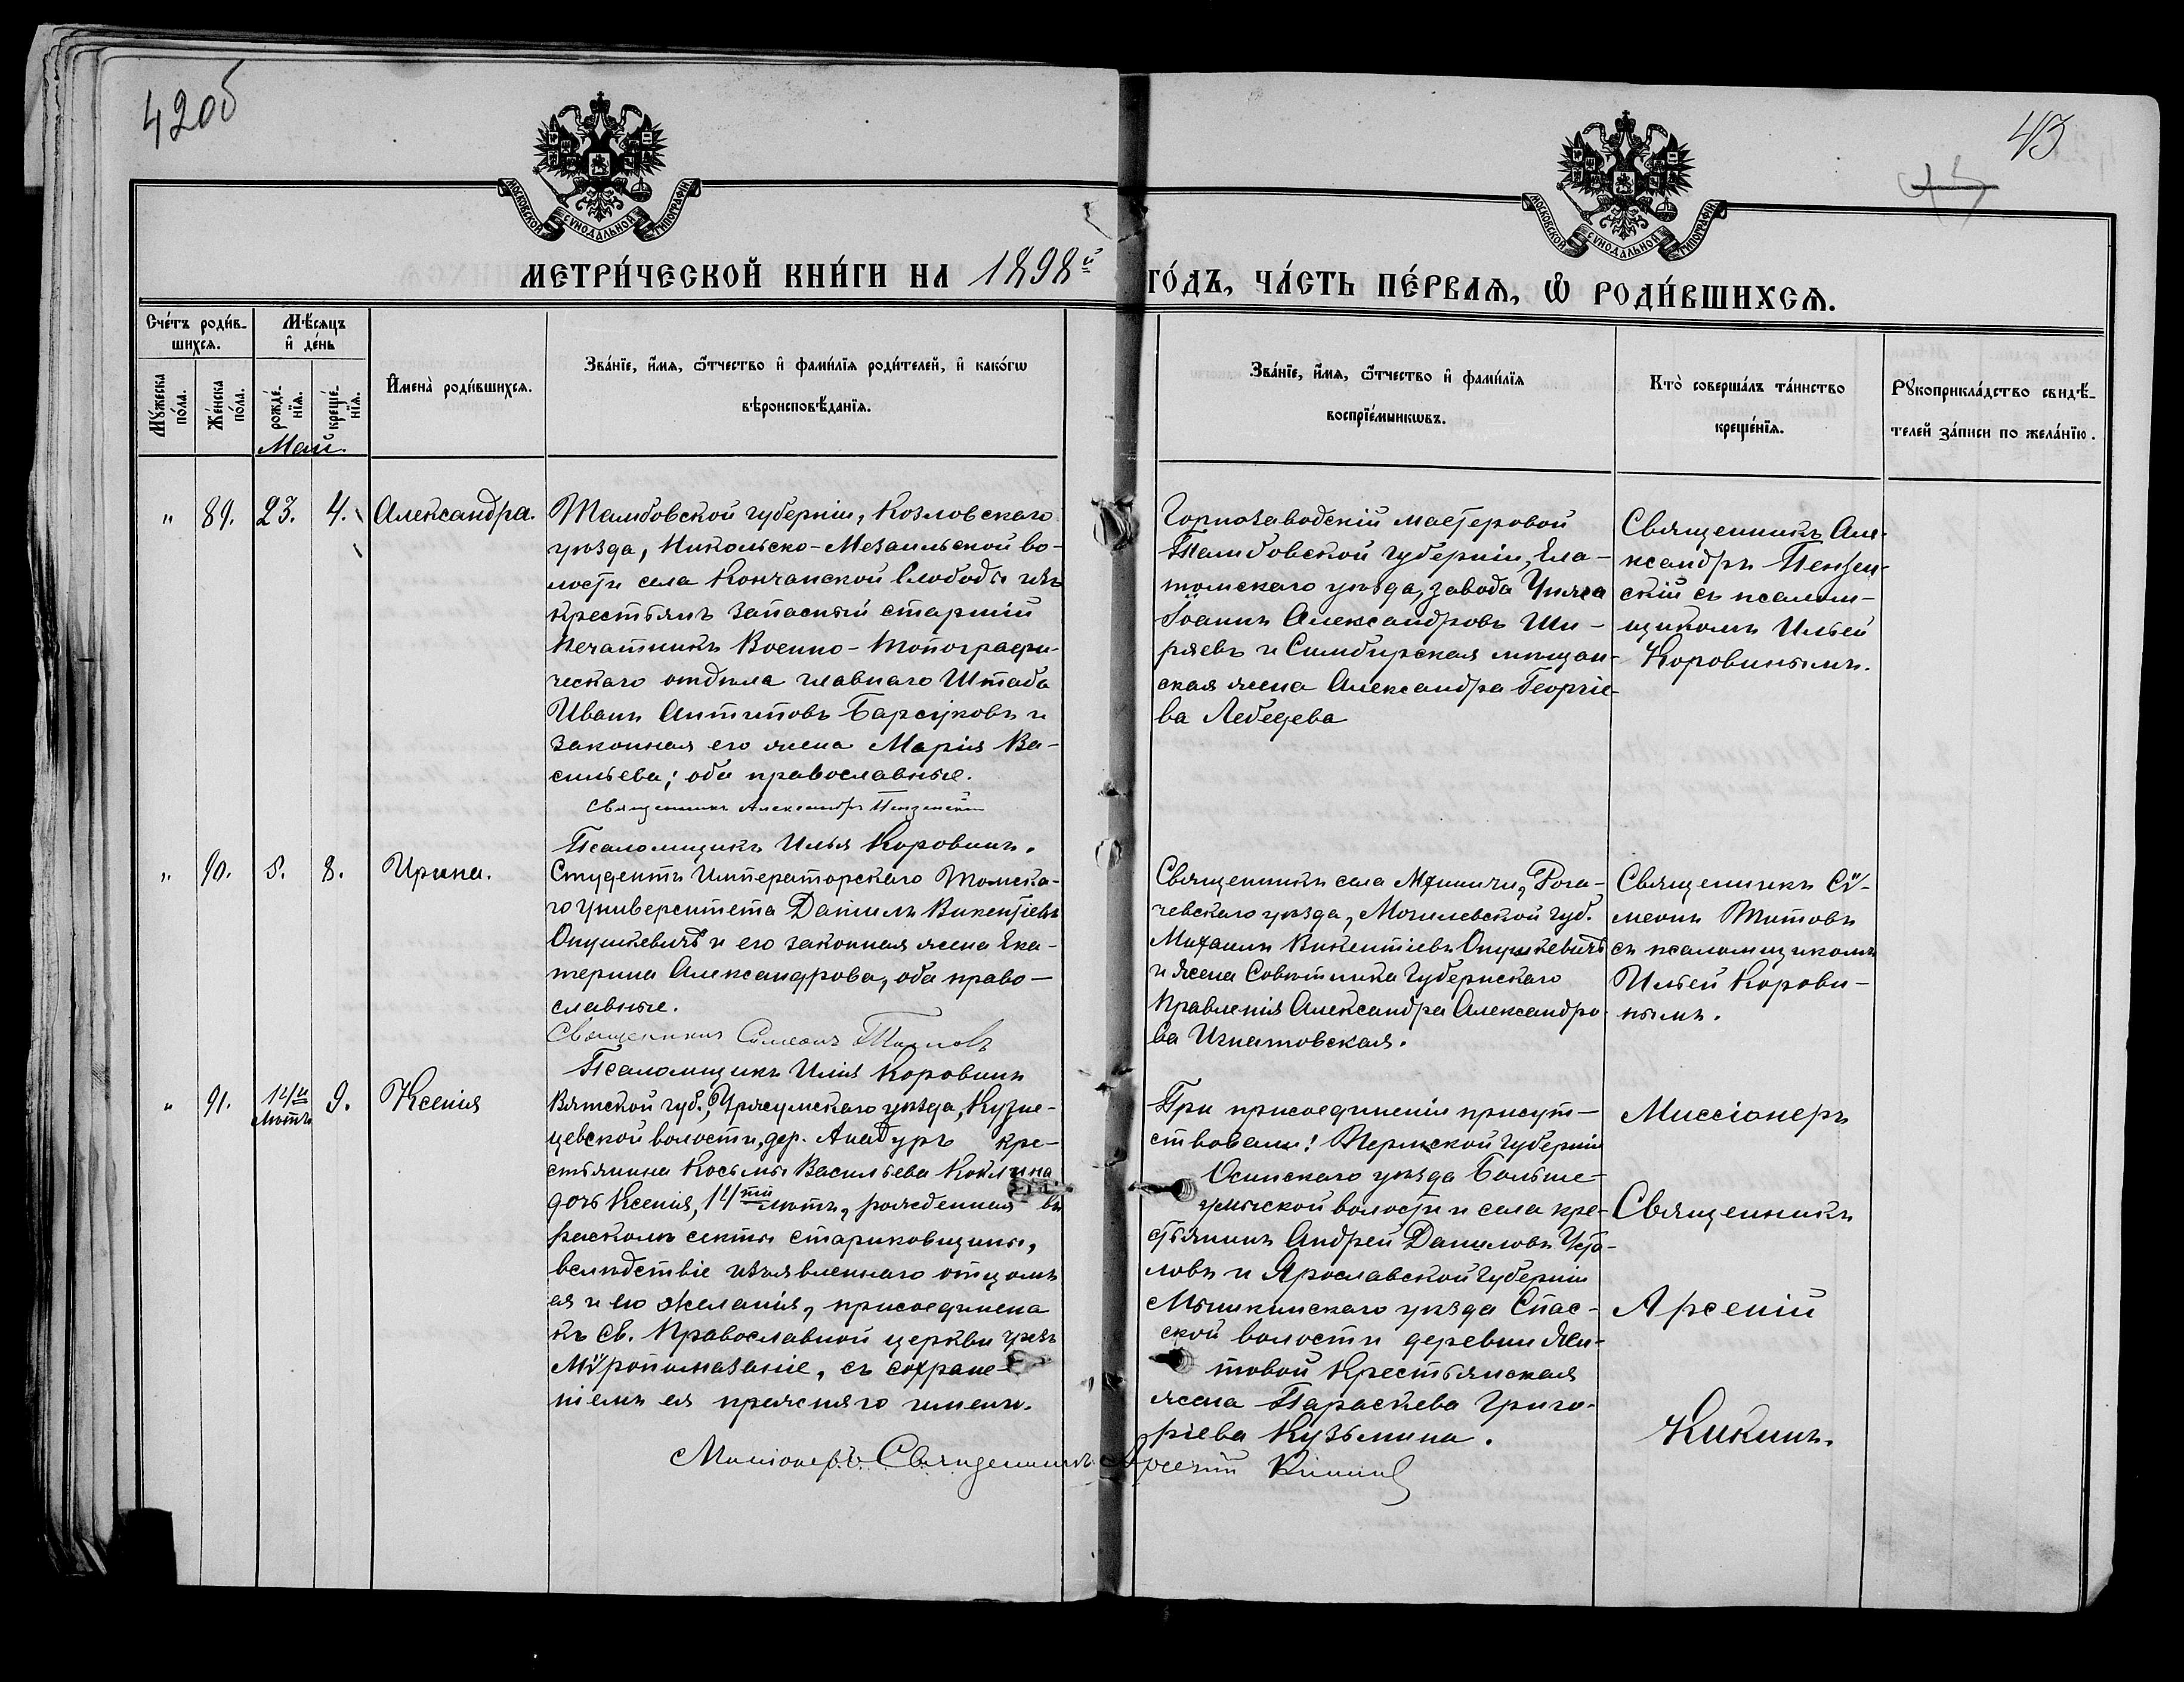 42об
43
МОСКОВСКОЙ СѴНОДАЛЬНОЙ ТИПОГРАФІИ
МОСКОВСКОЙ СѴНОДАЛЬНОЙ ТИПОГРАФІИ
МЕТРИ́ЧЕСКОЙ КНИ́ГИ НА 1898й ГО́ДЪ, ЧА́СТЬ ПЕ́РВАѦ, Ѡ РОДИ́ВШИХСѦ.
Сче́тъ роди́в-
шихсѧ.
Мѣ́сѧцъ
и҆ де́нь
Мꙋ́жеска
по́ла.
Же́нска
по́ла.
рожде́-
нїѧ.
креще́-
нїѧ.
Май.
И҆мена̀ роди́вшихсѧ.
Зва́нїе, и҆́мѧ, ѻ҆́тчество и҆ фами́лїѧ роди́телей, и҆ како́гѡ
вѣроисповѣ́данїѧ.
Зва́нїе, и҆́мѧ, ѻ҆́тчество и҆ фами́лїѧ
воспрїе́мникѡвъ.
Кто̀ соверша́лъ та́инство
креще́нїѧ.
Рꙋкоприкла́дство свидѣ́-
телей за́писи по жела́нїю.
" 89. 23. 4. Александра.
Тамбовской губерніи, Козловскаго
уѣзда, Никольско-Мезаильской во-
лости села Кончанской Слободы изъ
крестьянъ запасный старшій
печатникъ Военно-Топографи-
ческаго отдѣла главнаго Штаба
Иванъ Антиповъ Барсуковъ и
законная его жена Марія Ва-
сильева; оба православные.
Священникъ Александръ Пензенскій
Псаломщикъ Илья Коровинъ.
Горнозаводскій мастеровой
Тамбовской губерніи, Ела-
томскаго уѣзда, завода Унжа
Іоаннъ Александровъ Ши-
ряевъ и Симбирская мѣщан-
ская жена Александра Георгіе-
ва Лебедева
Священникъ Але-
ксандръ Пензен-
скій съ псалом-
щикомъ Ильей
Коровинымъ.
" 90. 5. 8. Ирина.
Студентъ Императорскаго Томска-
го Университета Даніилъ Викентіевъ
Опушкевичъ и его законная жена Ека-
терина Александрова, оба право-
славные.
Священникъ Симеонъ Титовъ
Псаломщикъ Илія Коровинъ
Священникъ села Рога-
чевскаго уѣзда, Могилевской губ.
Михаилъ Викентіевъ Опушкевичъ
и жена Совѣтника Губернскаго
Правленія Александра Александро-
ва Игнатовская.
Священникъ Сѵ-
меонъ Титовъ
съ псаломщикомъ
Ильей Корови-
нымъ.
" 91. 14и лѣтъ 9. Ксенія
Вятской губ., Уржумскаго уѣзда, Кузне-
цевской волости, дер. кре-
стьянина Косьмы Васильева
дочь Ксенія, 14ти лѣтъ, рожденная въ
расколѣ секты стариковщины,
вслѣдствіе изъявленнаго отцомъ
ея и ею желанія, присоединена
къ Св. Православной церкви чрезъ
Мѵропомазаніе, съ сохране-
ніемъ ея прежняго имени.
Миссіонеръ Священникъ Арсеній Кикинъ
При присоединеніи присут-
ствовали: Пермской губерніи
Осинскаго уѣзда Больше-
волости и села кре-
стьянинъ Андрей Даниловъ Уста-
ловъ и Ярославской Губерніи
Мышкинскаго уѣзда Спас-
ской волости деревни
Крестьянская
жена Параскева Григо-
рьева Кузьмина.
Миссіонеръ
Священникъ
Арсеній
Кикинъ.